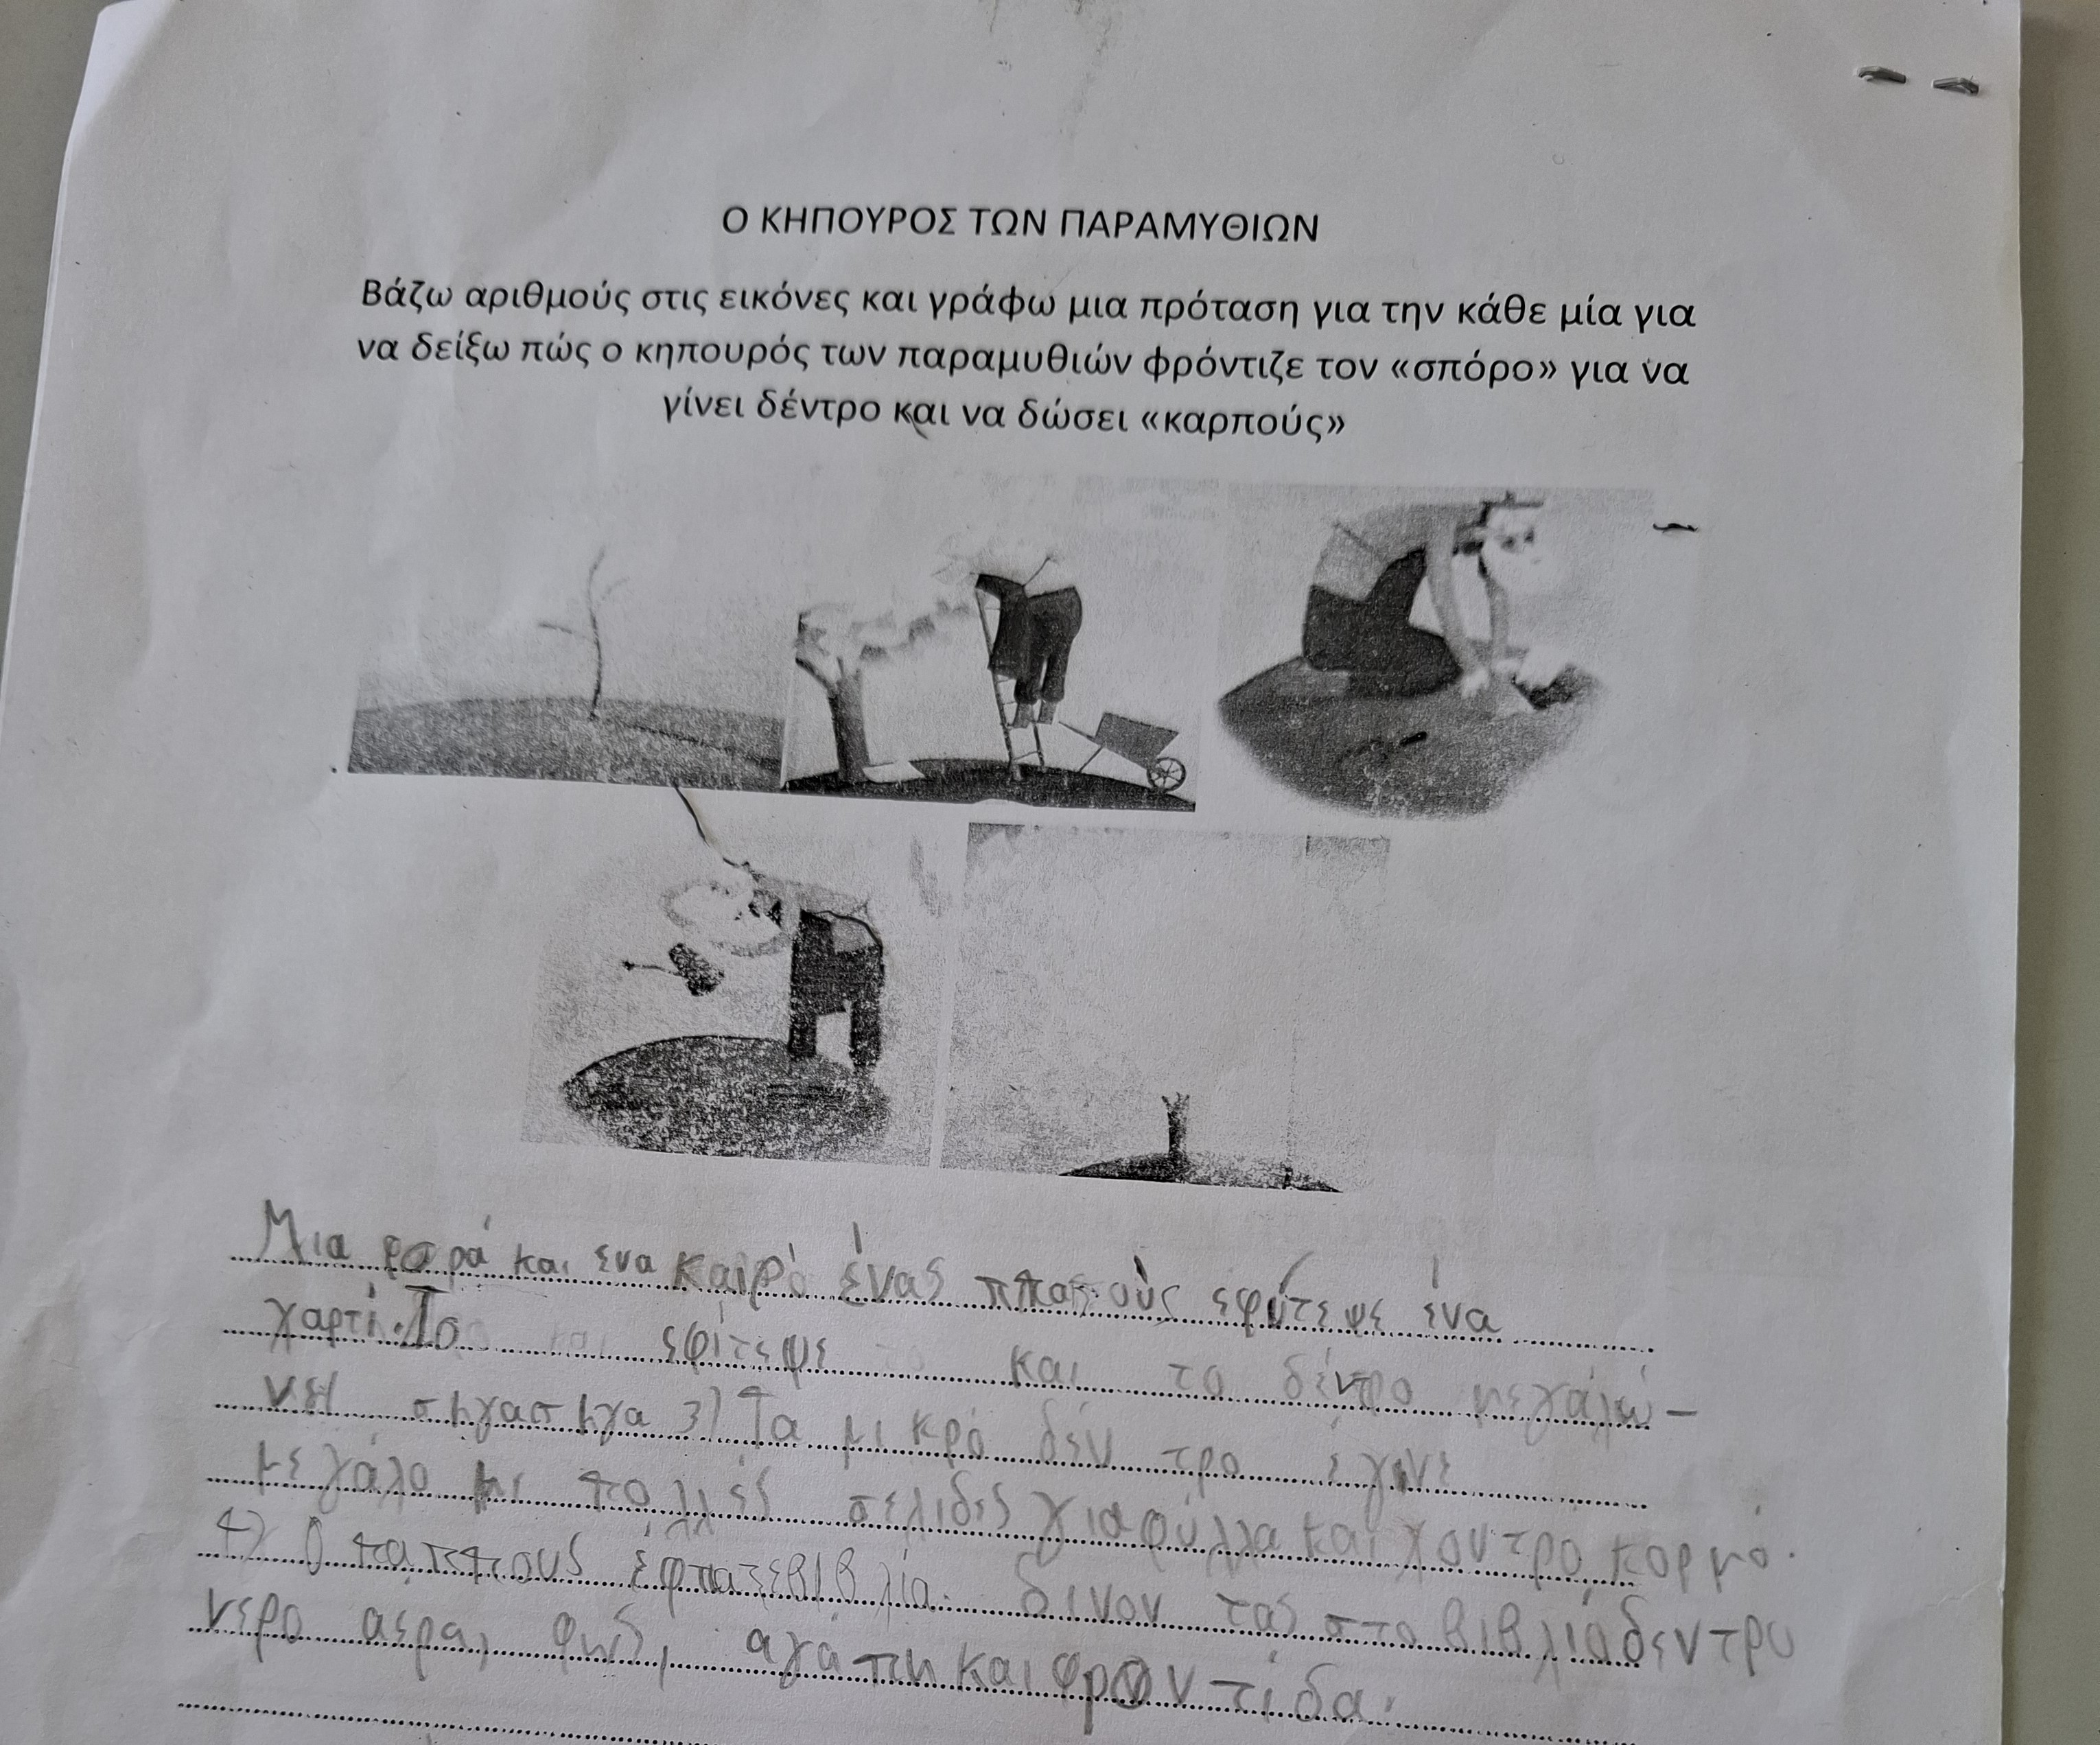 Ο ΚΗΠΟΥΡΟΣ ΤΩΝ ΠΑΡΑΜΥΘΙΩΝ
Βάζω αριθμούς στις εικόνες και γράφω μια πρόταση για την κάθε μία για
να δείξω πώς ο κηπουρός των παραμυθιών φρόντιζε τον «σπόρο» για να
γίνει δέντρο και να δώσει «καρπούς»
Μια φορά και ενα καιρό ένας εφύτεψε ένα
χαρτί. Το εφίτεψε και το δέντρο μεγάλω-
νει σηγασηγα 3) Τα μικρό δέν τρο έγινε
μεγάλο με πολλές σελιδες για φύλλα και χοντρό κορμό.
4) Ο παππους έφτιαξε βιβλία. δινον τας στο βιβλιόδεντρο
νερο αερα, φως, αγάπη και φροντίδα.